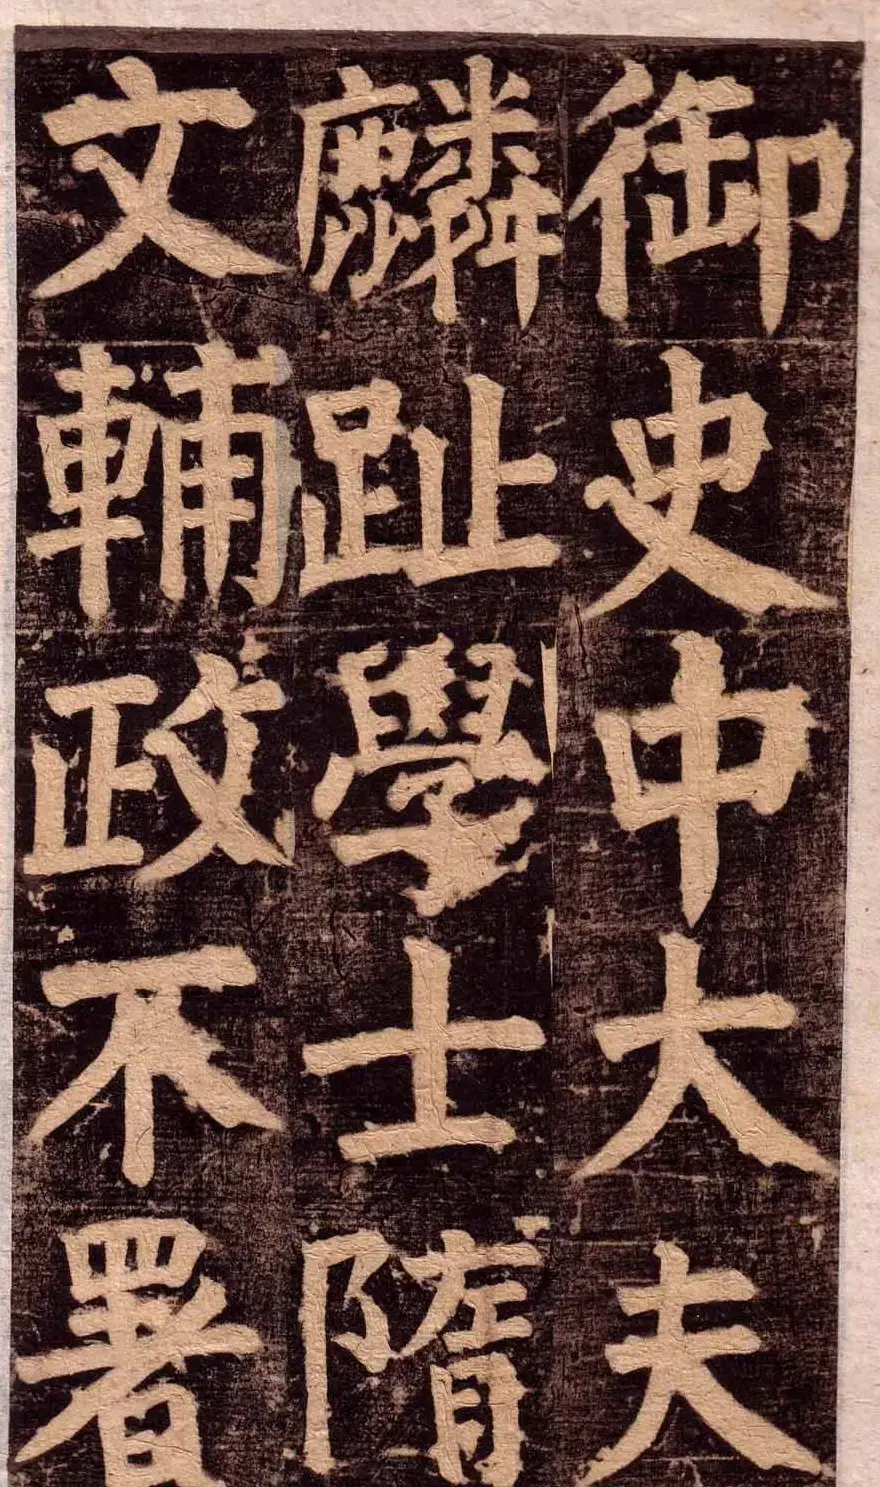 御史中大夫
麟趾學士隋
文輔政不署